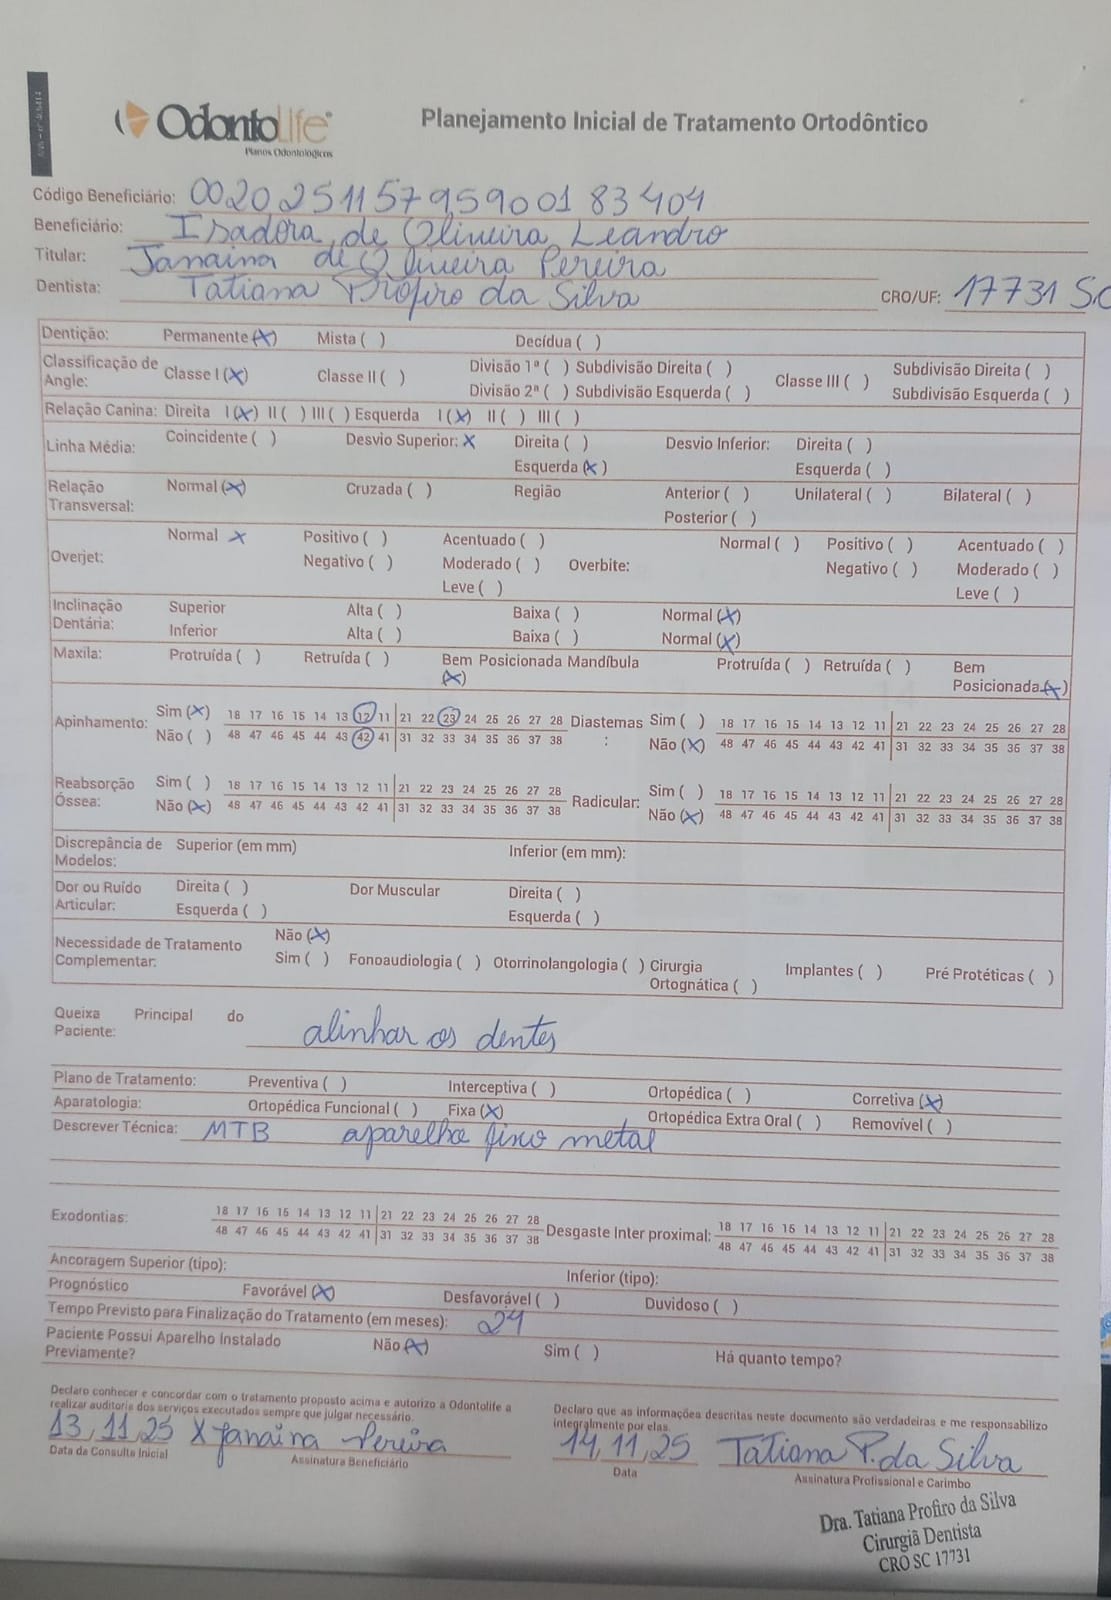 OdontoLife
Planos Odontológicos
Planejamento Inicial de Tratamento Ortodôntico
Código Beneficiário: 00202511579590018 3404
Beneficiário: Isadora de Oliveira Leandro
Titular: Janaina de Oliveira Pereira
Dentista: Tatiana Profiro da Silva CRO/UF: 17731 SC
Dentição: Permanente (x) Mista ( ) Decídua ( )
Classificação de Angle: Classe I (x) Classe II ( ) Divisão 1ª ( ) Subdivisão Direita ( ) Classe III ( ) Subdivisão Direita ( )
Divisão 2ª ( ) Subdivisão Esquerda ( ) Subdivisão Esquerda ( )
Relação Canina: Direita I (x) II ( ) III ( ) Esquerda I (x) II ( ) III ( )
Linha Média: Coincidente ( ) Desvio Superior: x Direita ( ) Desvio Inferior: Direita ( )
Esquerda (x) Esquerda ( )
Relação Transversal: Normal (x) Cruzada ( ) Região Anterior ( ) Unilateral ( ) Bilateral ( )
Posterior ( )
Overjet: Normal x Positivo ( ) Acentuado ( ) Normal ( ) Positivo ( ) Acentuado ( )
Negativo ( ) Moderado ( ) Overbite: Negativo ( ) Moderado ( )
Leve ( ) Leve ( )
Inclinação Dentária: Superior Alta ( ) Baixa ( ) Normal (x)
Inferior Alta ( ) Baixa ( ) Normal (x)
Maxila: Protruída ( ) Retruída ( ) Bem Posicionada Mandíbula Protruída ( ) Retruída ( ) Bem
(x) Posicionada (x)
Apinhamento: Sim (x) 18 17 16 15 14 13 12 11 21 22 23 24 25 26 27 28 Diastemas Sim ( ) 18 17 16 15 14 13 12 11 21 22 23 24 25 26 27 28
Não ( ) 48 47 46 45 44 43 42 41 31 32 33 34 35 36 37 38 : Não (x) 48 47 46 45 44 43 42 41 31 32 33 34 35 36 37 38
Reabsorção Óssea: Sim ( ) 18 17 16 15 14 13 12 11 21 22 23 24 25 26 27 28 Radicular: Sim ( ) 18 17 16 15 14 13 12 11 21 22 23 24 25 26 27 28
Não (x) 48 47 46 45 44 43 42 41 31 32 33 34 35 36 37 38 Não (x) 48 47 46 45 44 43 42 41 31 32 33 34 35 36 37 38
Discrepância de Modelos: Superior (em mm) Inferior (em mm):
Dor ou Ruído Articular: Direita ( ) Dor Muscular Direita ( )
Esquerda ( ) Esquerda ( )
Necessidade de Tratamento Complementar: Não (x)
Sim ( ) Fonoaudiologia ( ) Otorrinolangologia ( ) Cirurgia Ortognática ( ) Implantes ( ) Pré Protéticas ( )
Queixa Principal do Paciente: alinhar os dentes
Plano de Tratamento: Preventiva ( ) Interceptiva ( ) Ortopédica ( ) Corretiva (x)
Aparatologia: Ortopédica Funcional ( ) Fixa (x) Ortopédica Extra Oral ( ) Removível ( )
Descrever Técnica: MTB aparelho fixo metal
Exodontias: 18 17 16 15 14 13 12 11 21 22 23 24 25 26 27 28 Desgaste Inter proximal: 18 17 16 15 14 13 12 11 21 22 23 24 25 26 27 28
48 47 46 45 44 43 42 41 31 32 33 34 35 36 37 38 48 47 46 45 44 43 42 41 31 32 33 34 35 36 37 38
Ancoragem Superior (tipo): Inferior (tipo):
Prognóstico Favorável (x) Desfavorável ( ) Duvidoso ( )
Tempo Previsto para Finalização do Tratamento (em meses): 24
Paciente Possui Aparelho Instalado Previamente? Não (x) Sim ( ) Há quanto tempo?
Declaro conhecer e concordar com o tratamento proposto acima e autorizo a Odontolife a
realizar auditoria dos serviços executados sempre que julgar necessário.
Declaro que as informações descritas neste documento são verdadeiras e me responsabilizo
integralmente por elas.
13, 11, 25 X Janaina Pereira 14, 11, 25 Tatiana P. da Silva
Data da Consulta Inicial Assinatura Beneficiário Data Assinatura Profissional e Carimbo
Dra. Tatiana Profiro da Silva
Cirurgiã Dentista
CRO SC 17731